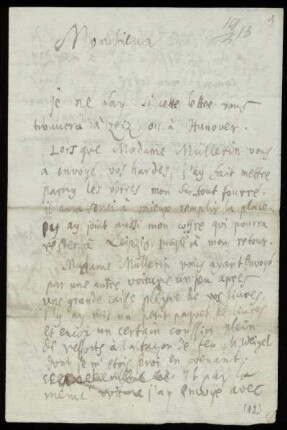 1
19/13
Monsieur
je ne say si cette lettre vous
trouvera à Zeiz ou à Hanover.
Lors que Madame Mullerin vous
a envoyé vos hardes, j'ay fait mettre
parmy les vostres mon surtout fourré
il aura servi à mieux remplir la place
j'y ay joint aussi mon coffre qui pourra
rester à Leipzig jusqu'à mon retour.
Madame Mullerin vous ayant envoyé
par une autre voiture un peu apres
une grande caisse pleine de vos livres,
j'y ay mis un petit paquet de livres
et encor un certain coussin plein
de ressorts à la façon de feu M. Weigel
dont je m'etois servi en venant
Et par la
même voiture j'ay envoyé avec
(12)